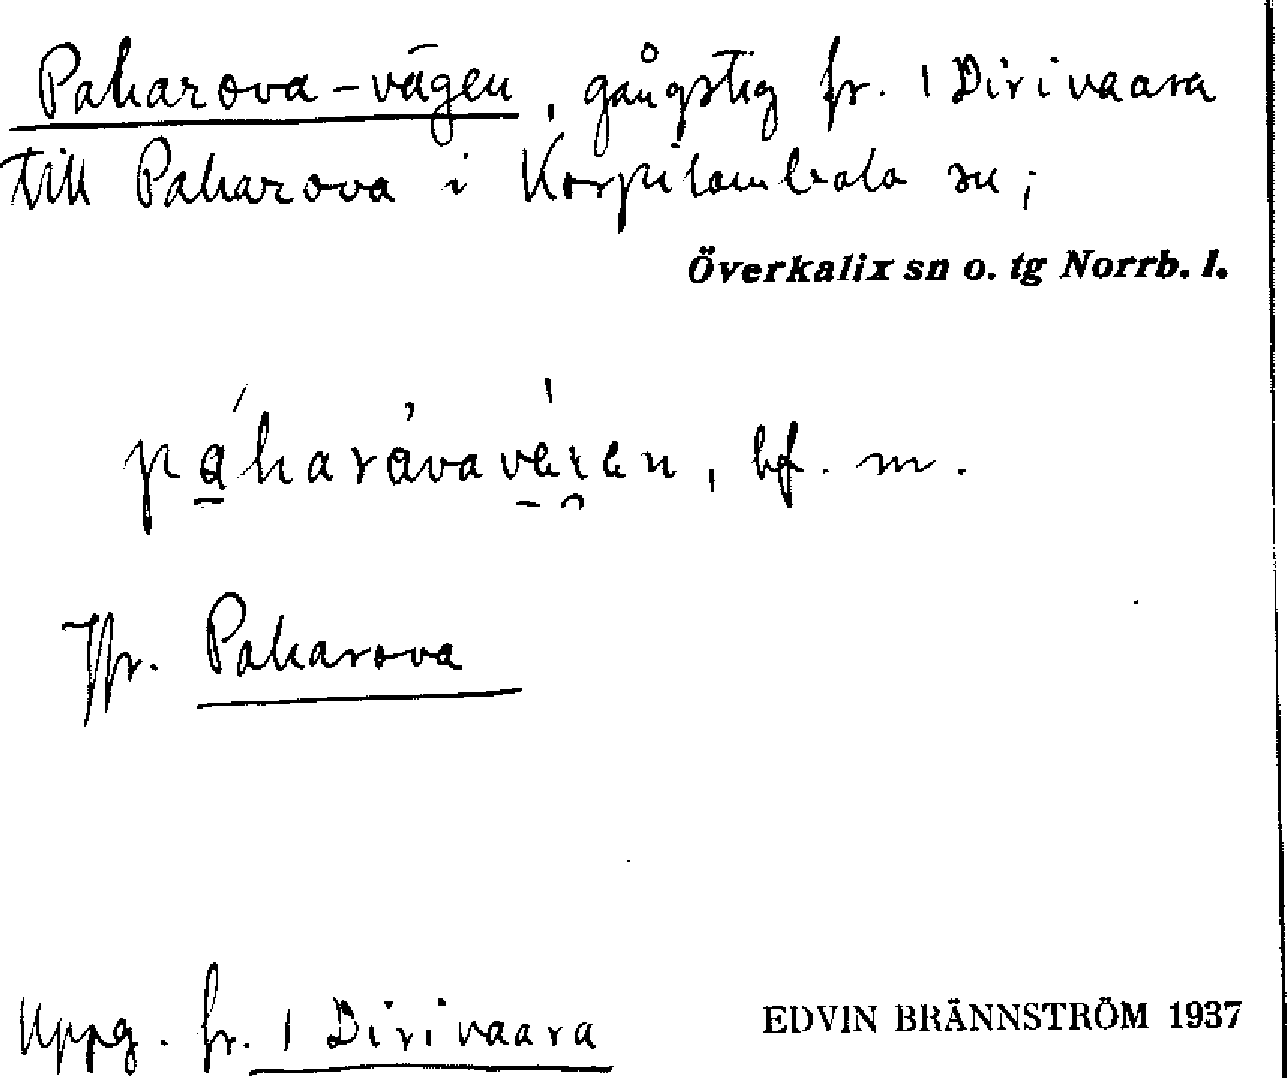 Paharova-vägen, gångstig fr. 1 Dirivaara
till Paharova i Korpilombolo sn;
Överkalix sn o. tg Norrb. l.
bf. m.
Jfr. Paharova
Uppg. fr. 1 Dirivaara
EDVIN BRÄNNSTRÖM 1937